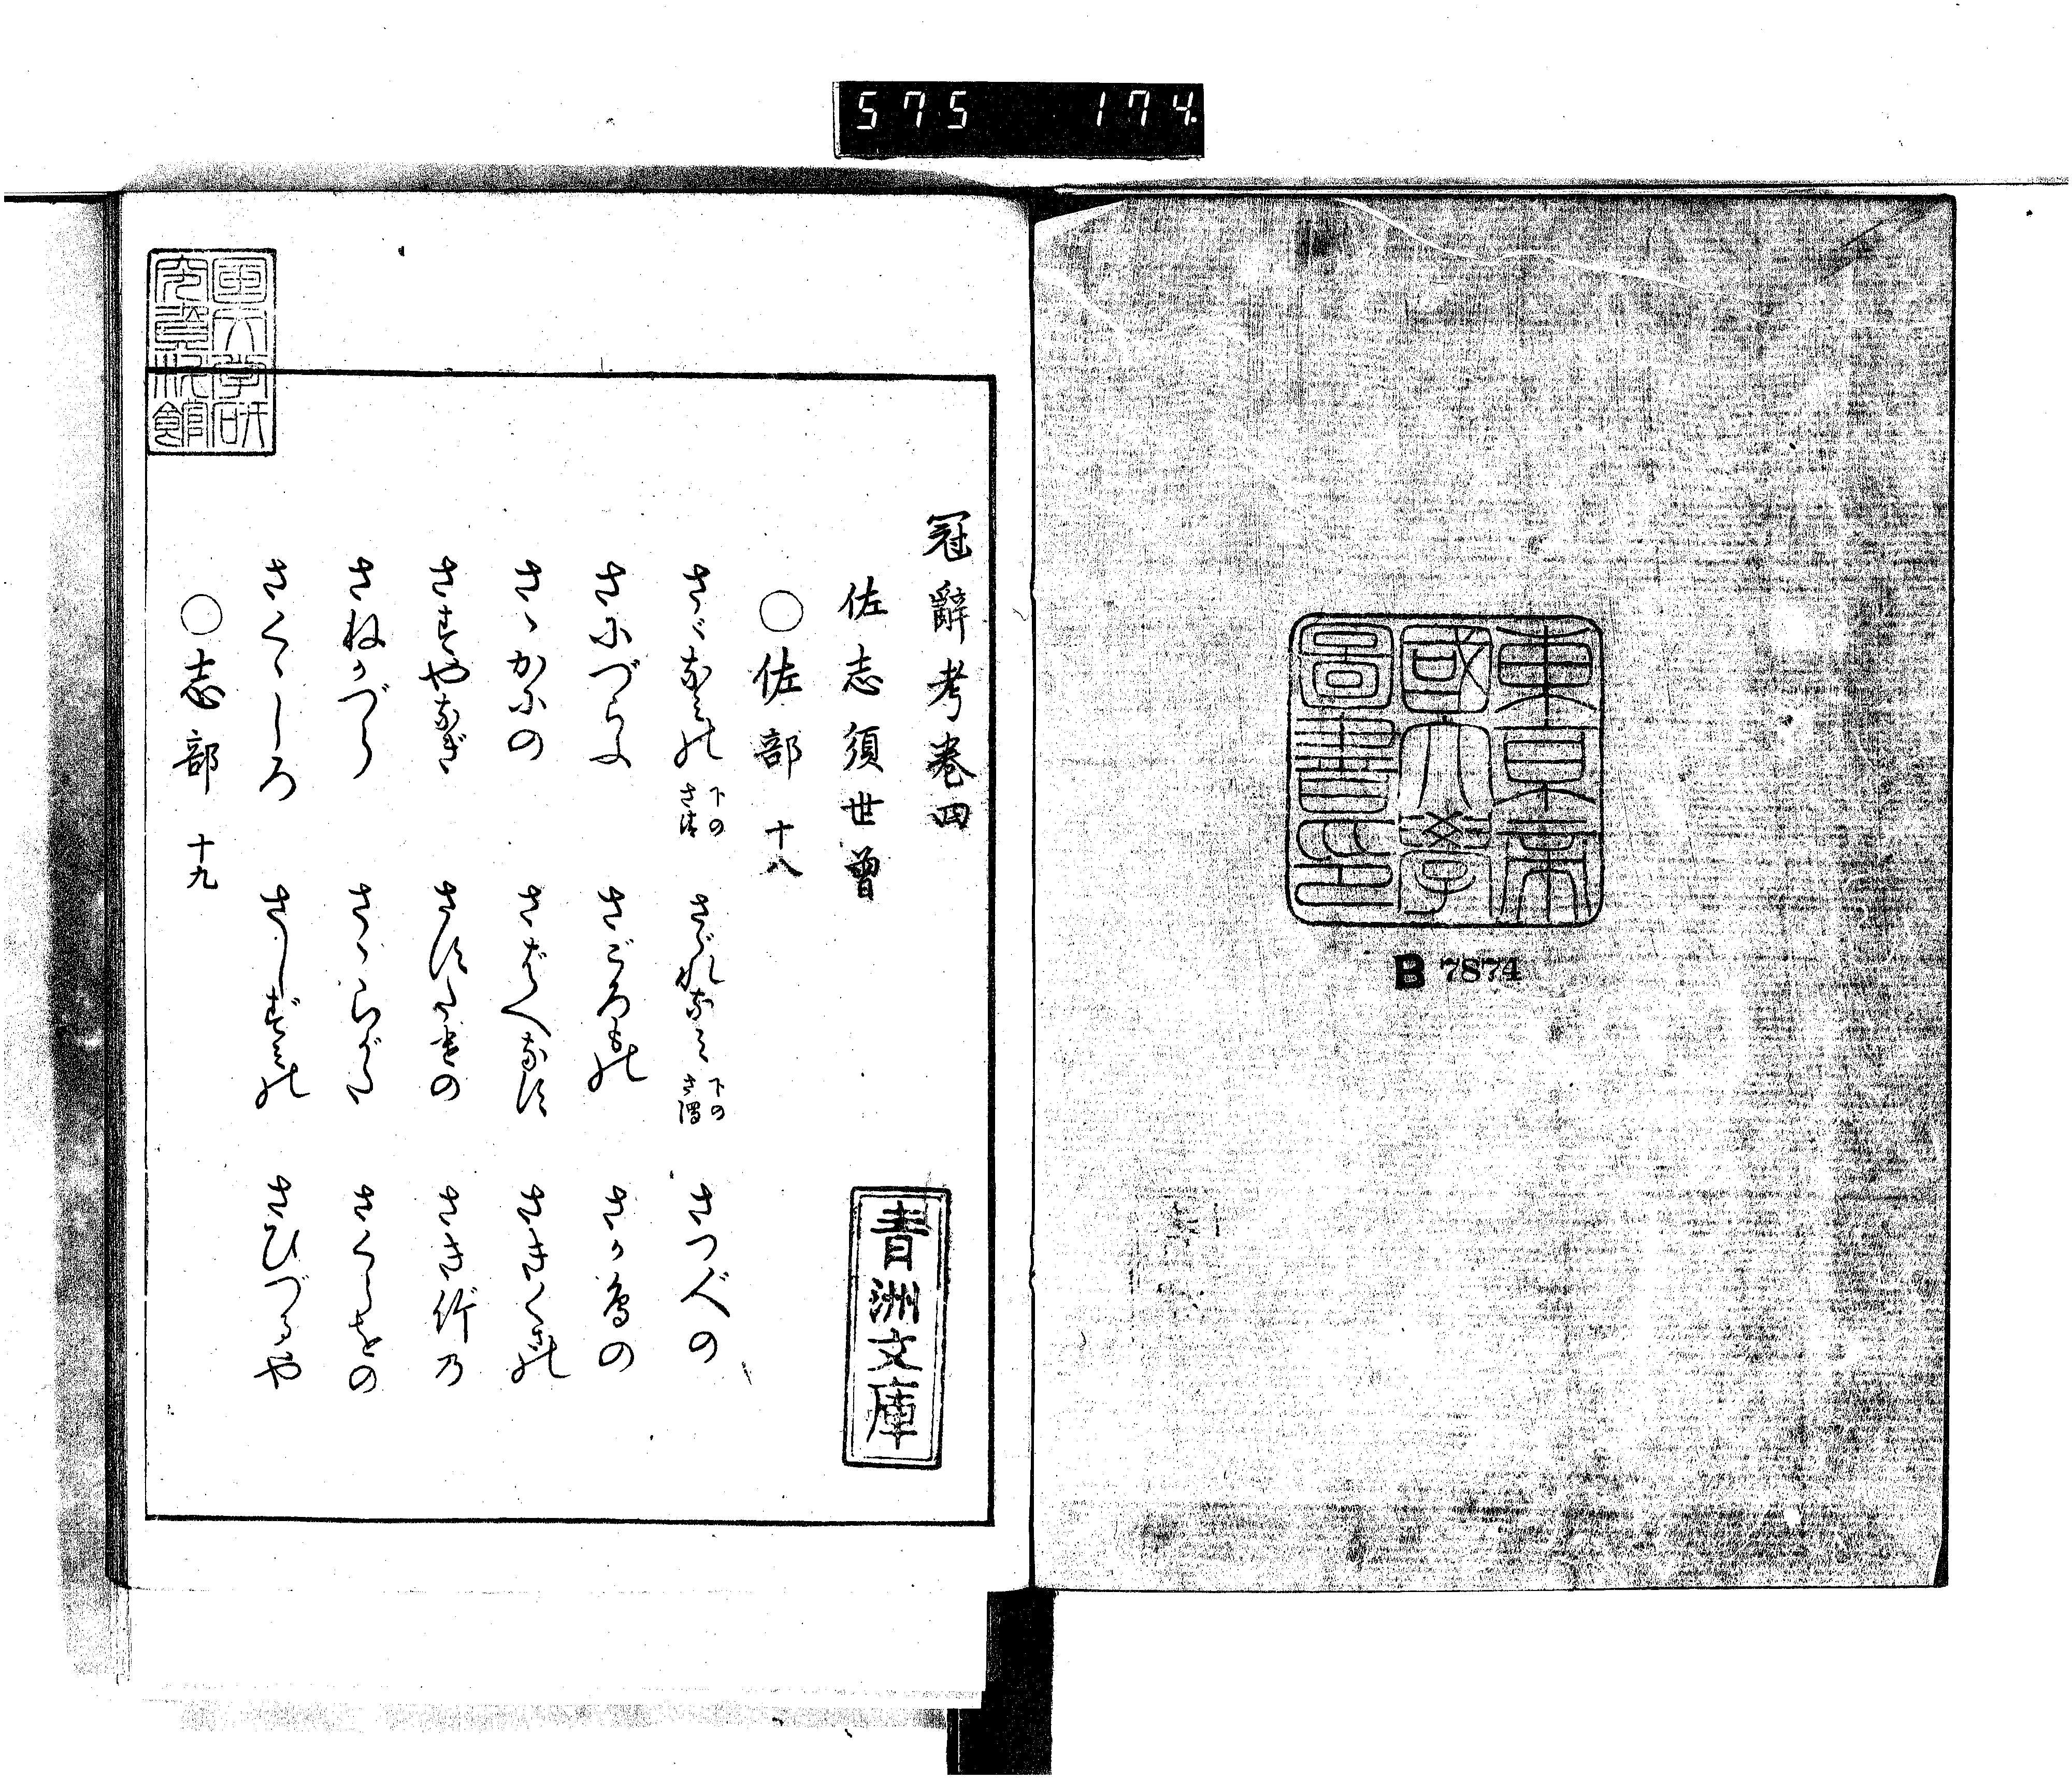 575 174
東京帝
國大學
圖書印
B 7874
冠辭考巻四
佐志須世曾
青洲文庫
○佐部 十八
さゞなみの 下のさ清 さゞれなみ 下のさ濁 さつ人の
さにづらふ さごろもの さか鳥の
さゝかにの さばへなす さきくさの
さすやなぎ さすたけの さき竹乃
さねかづら さゝらがた さくらをの
さくゝしろ さしずみの さひづるや
○志部 十九
国文学研
究資料館